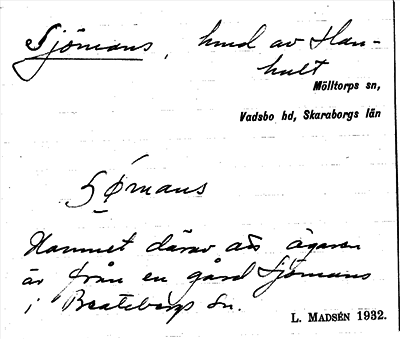 Sjömans, hmd av Han-
hult
Mölltorps sn,
Vadsbo hd, Skaraborgs län
Namnet därav att ägaren
är från en gård Sjömans
i Breatebergs sn.
L. MADSÉN 1932.